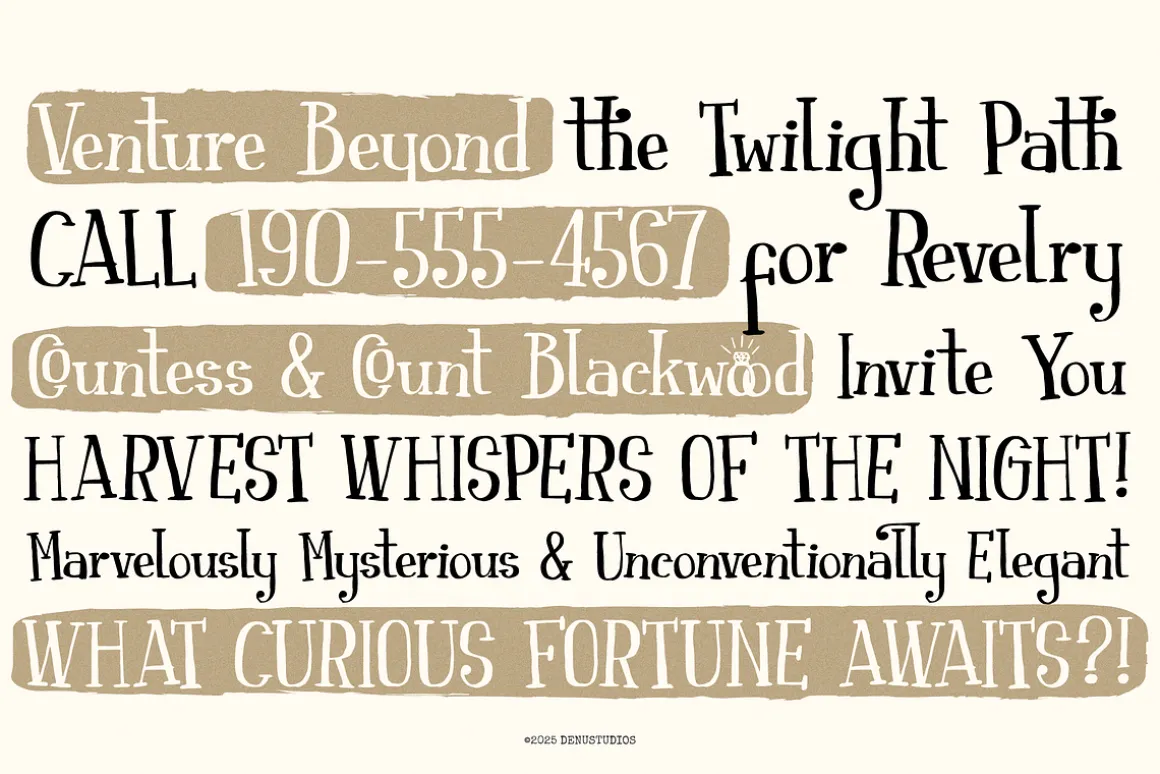 Venture Beyond the Twilight Path
CALL 190-555-4567 for Revelry
Countess & Count Blackwood Invite You
HARVEST WHISPERS OF THE NIGHT!
Marvelously Mysterious & Unconventionally Elegant
WHAT CURIOUS FORTUNE AWAITS?!
©2025 DENUSTUDIOS